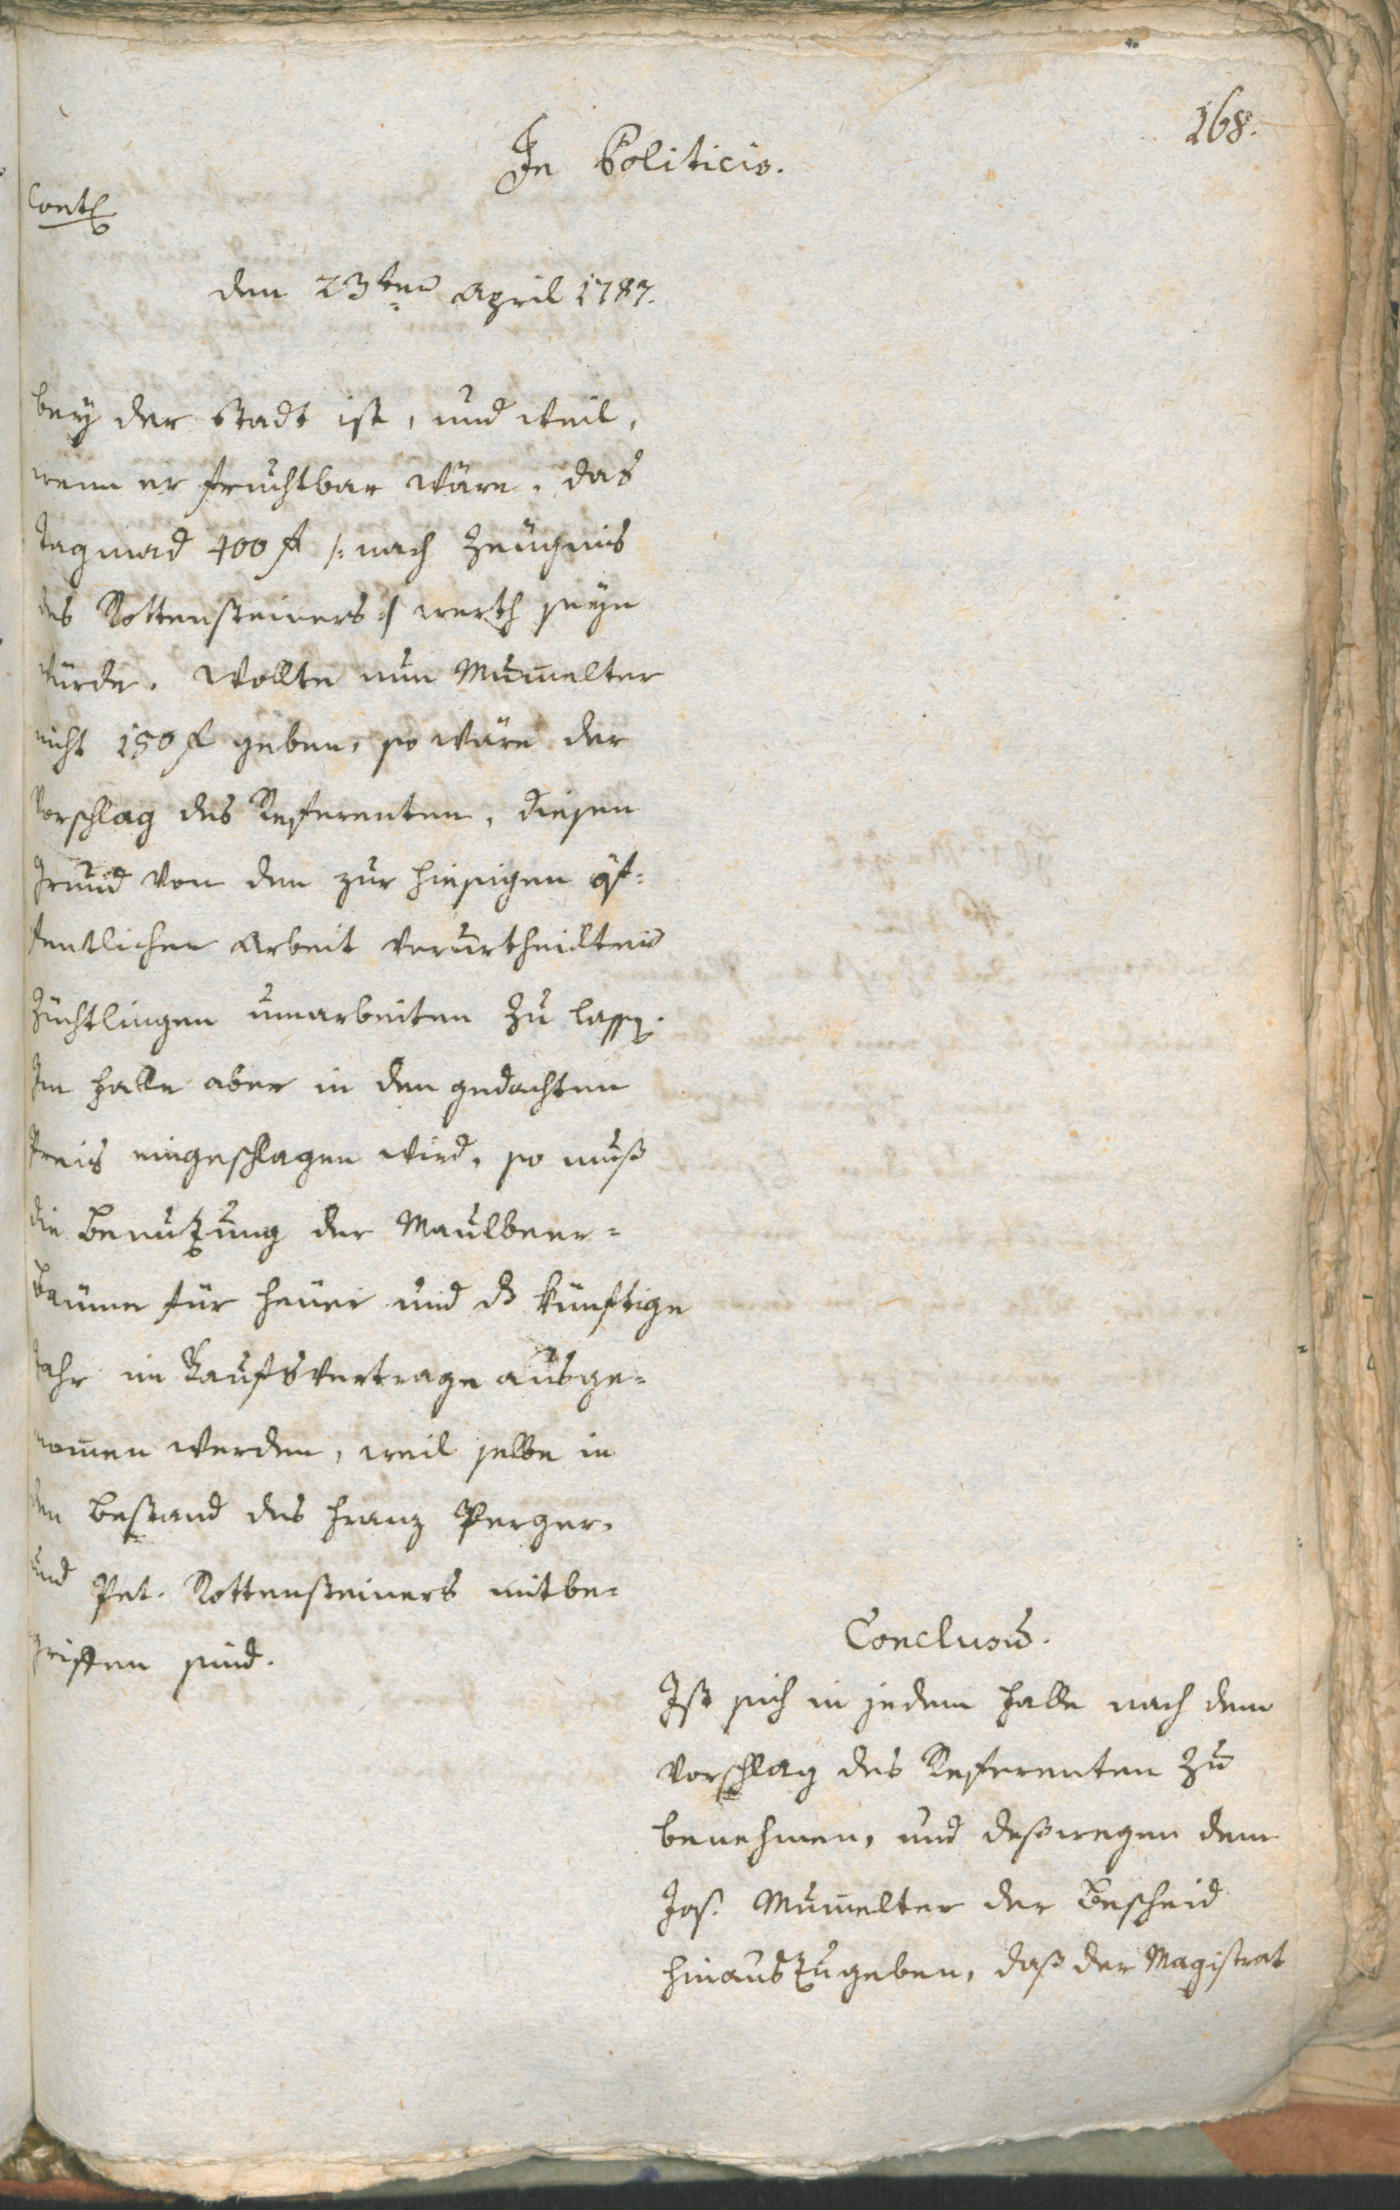 168.
In Politicis.
Cont.
den 23ten April 1787.
bey der Stadt ist, und weil,
wenn er fruchtbar wäre, das
Tagmad 400 f /: nach Zeugnis
des Rottensteiners :/ werth seyn
würde. Wollte nun Mum̅elter
nicht 150 f geben, so wäre der
Vorschlag des Referenten, diesen
Grund von den zur hiesigen öf-
fentlichen Arbeit verurtheilten
Züchtlingen umarbeiten zu lassen.
Im Falle aber in den gedachten
Preis eingeschlagen wird, so muß
die Benutzung der Maulbeer-
bäume für heuer und das künftige
Jahr im Kaufsvertrage ausge-
nom̅en werden, weil selbe in
den Bestand des Franz Perger,
und Pet. Rottensteiners mitbe-
griffen sind.
Conclusu̅.
Ist sich in jedem Falle nach dem
Vorschlag des Referenten zu
benehmen, und deßwegen dem
Jos. Mum̅elter der Bescheid
hinauszugeben, daß der Magistrat